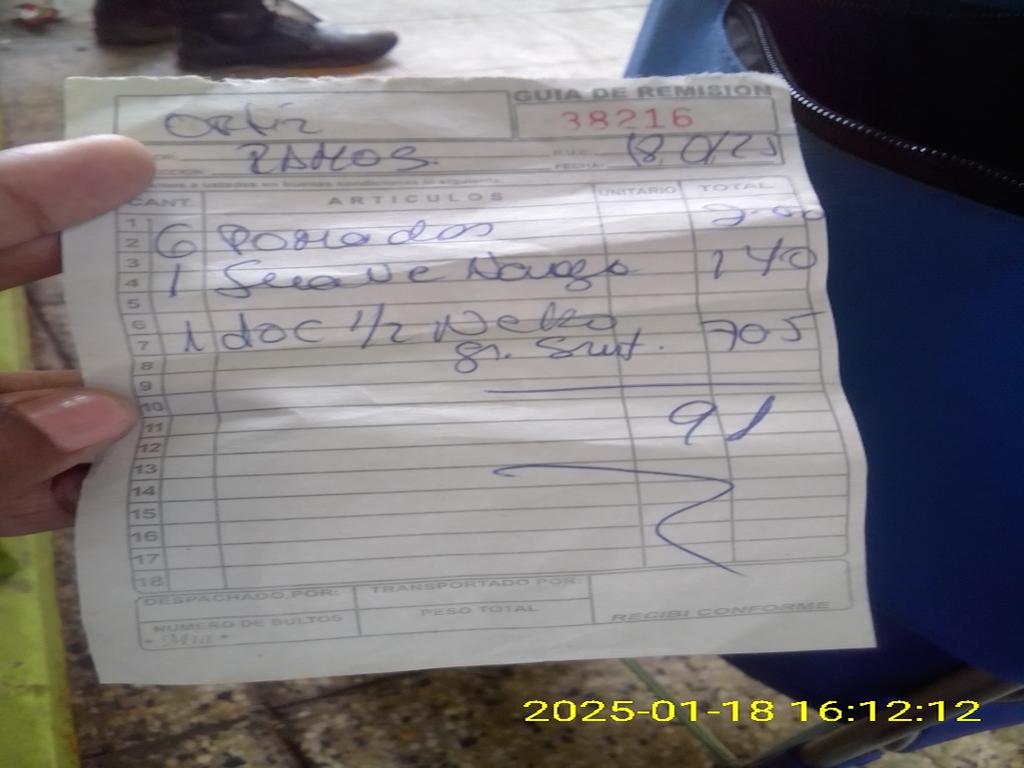 GUIA DE REMISION
Ortiz
38216
RAMOS.
R.U.C.
FECHA: 18/01/25
en buenas condiciones lo siguiente
CANT. ARTICULOS UNITARIO TOTAL
1
2 6 Pomados
3
4 1 Suave 140
5
6 1 doc 1/2
7 gr. Surt. 705
8
9
10
11 91
12
13
14
15
16
17
18
DESPACHADO POR: TRANSPORTADO POR:
NUMERO DE BULTOS PESO TOTAL RECIBI CONFORME
2025-01-18 16:12:12